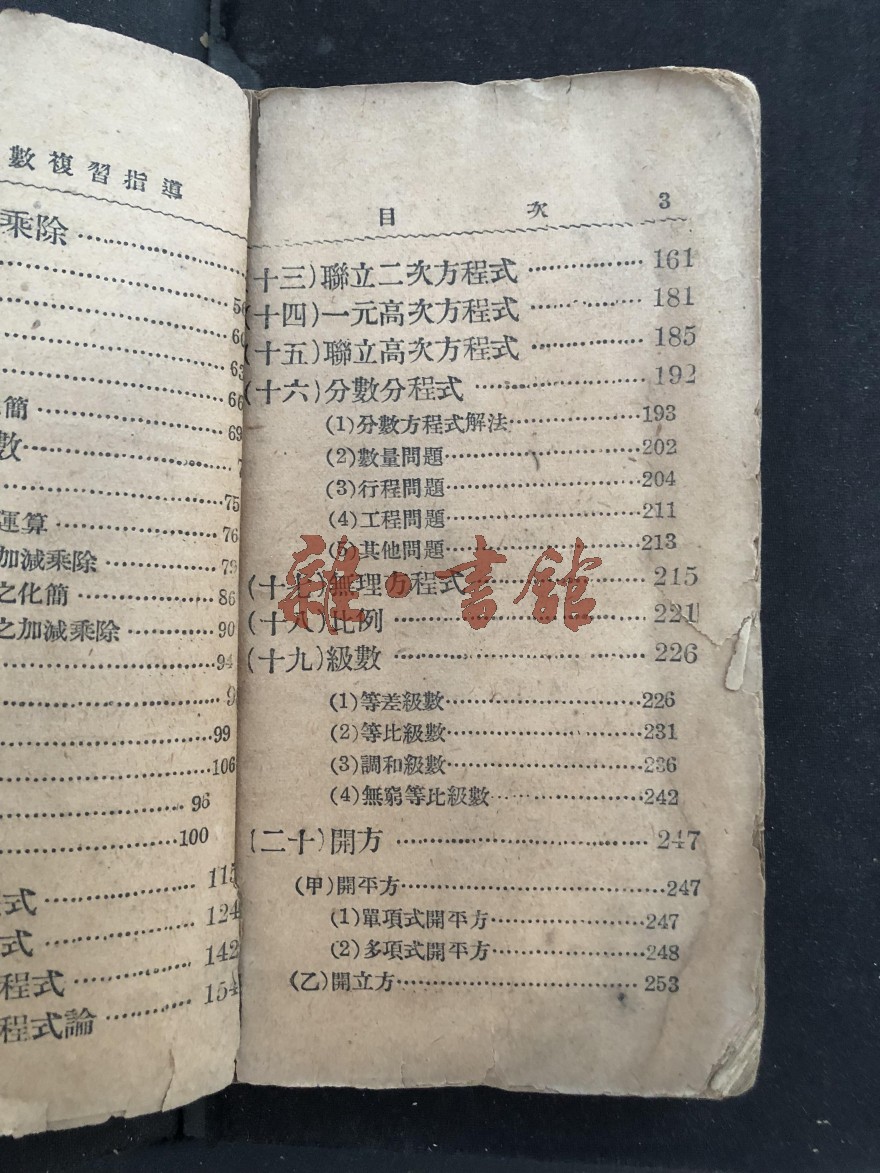 數複習指導
乘除
56
60
63
66
簡 69
數 7
75
運算 76
加減乘除 79
之化簡 86
之加減乘除 90
94
9
99
106
96
100
115
式 124
式 142
程式 154
程式論
目 次 3
(十三)聯立二次方程式 161
(十四)一元高次方程式 181
(十五)聯立高次方程式 185
(十六)分數分程式 192
(1)分數方程式解法 193
(2)數量問題 202
(3)行程問題 204
(4)工程問題 211
(5)其他問題 213
(十七)無理方程式 215
(十八)比例 221
(十九)級數 226
(1)等差級數 226
(2)等比級數 231
(3)調和級數 236
(4)無窮等比級數 242
(二十)開方 247
(甲)開平方 247
(1)單項式開平方 247
(2)多項式開平方 248
(乙)開立方 253
雜·書館